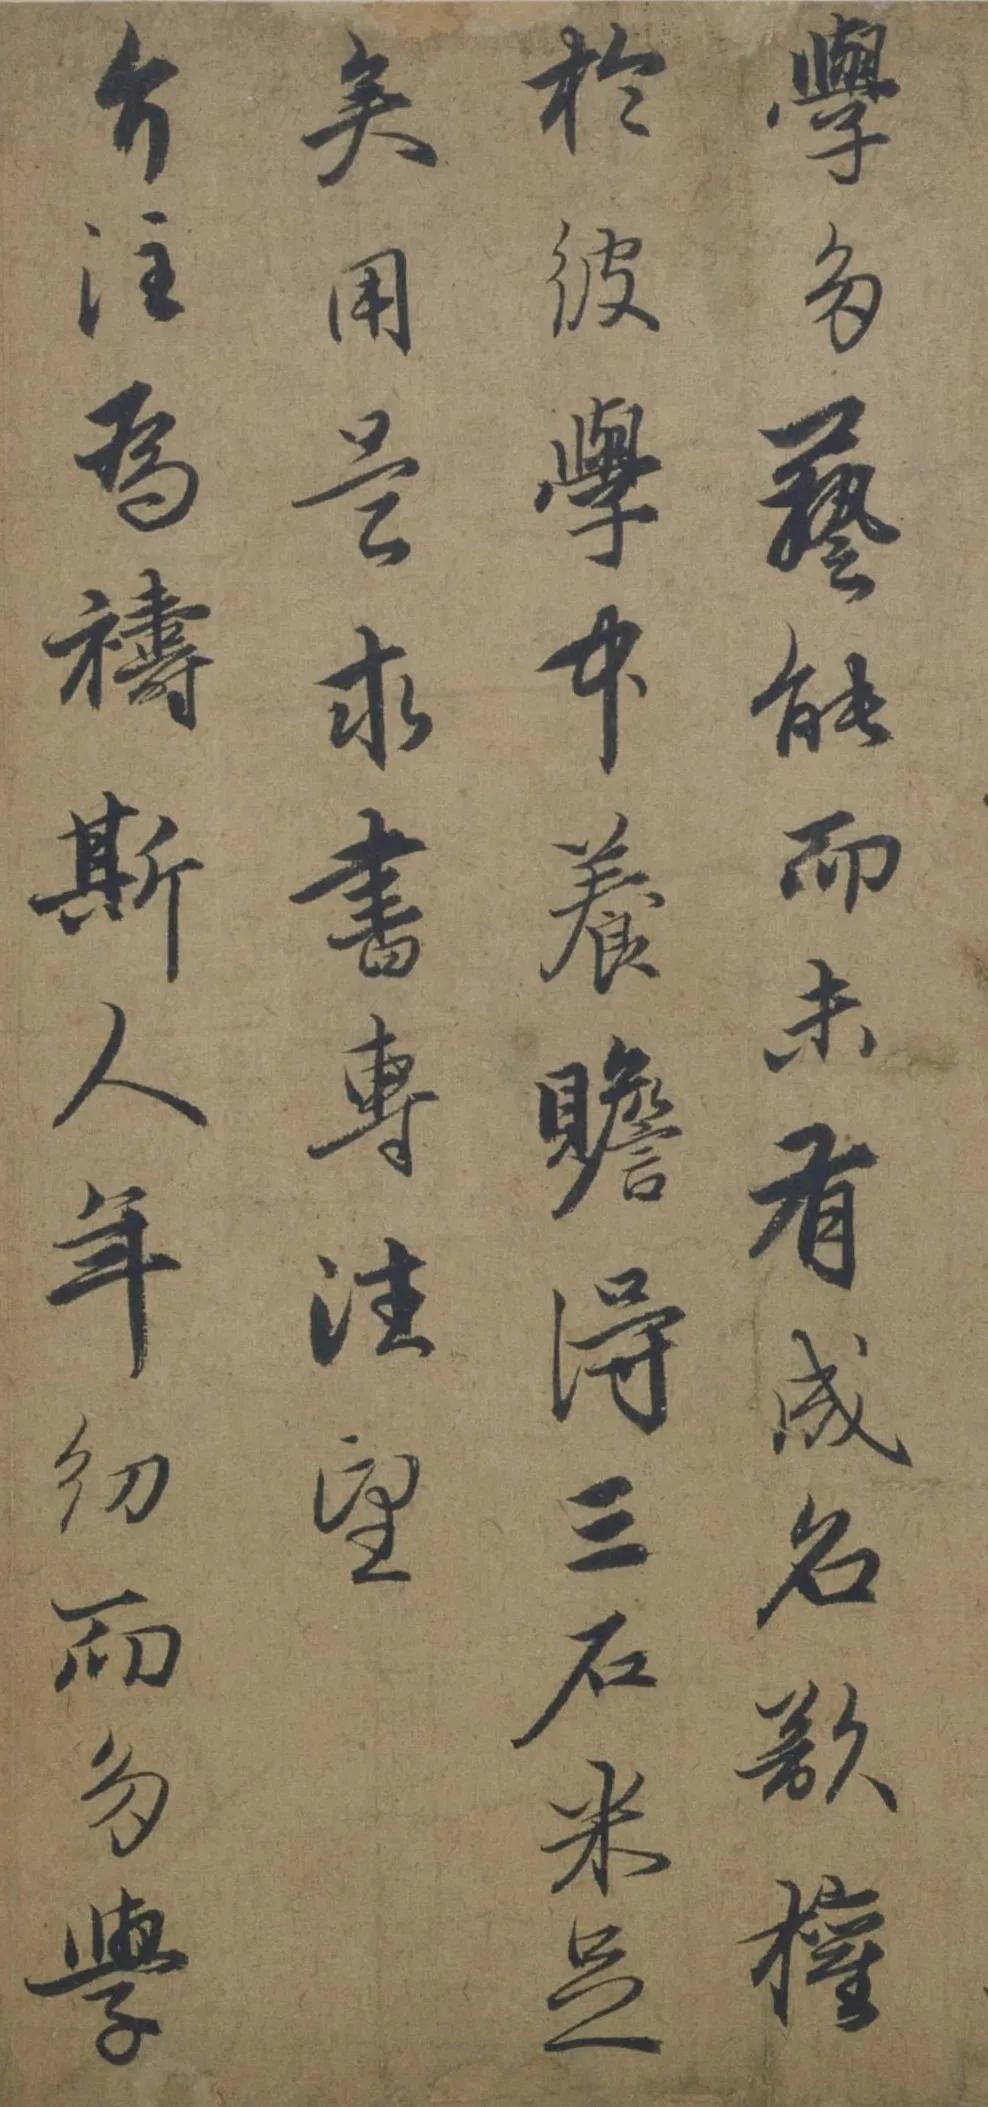 學多藝能而未有成名欲權
於彼學中養贍得三石米足
矣用是求書專注望
介注為禱斯人年幼而多學